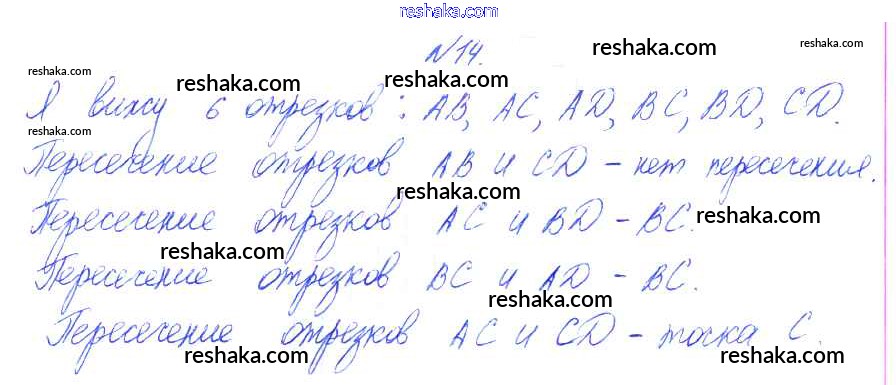 reshaka.com
№14.
reshaka.com
reshaka.com
reshaka.com
reshaka.com
reshaka.com
Я вижу 6 отрезков: AB, AC, AD, BC, BD, CD.
reshaka.com
reshaka.com
Пересечение отрезков AB и CD - нет пересечения.
reshaka.com
Пересечение отрезков AC и BD - BC.
reshaka.com
reshaka.com
Пересечение отрезков BC и AD - BC.
reshaka.com
Пересечение отрезков AC и CD - точка C.
reshaka.com
reshaka.com